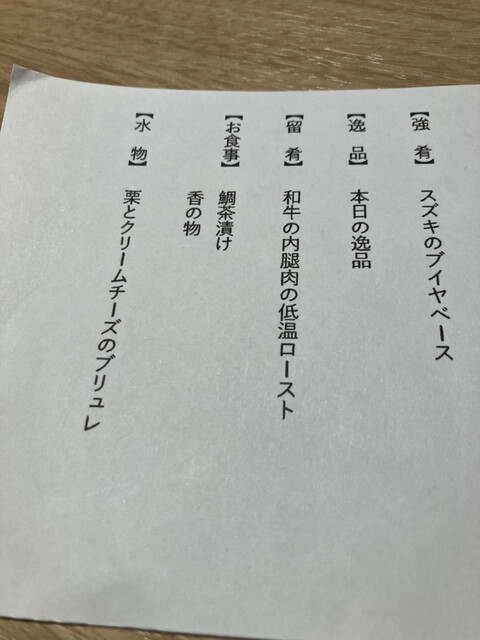 【強肴】 スズキのブイヤベース
【逸品】 本日の逸品
【留肴】 和牛の内腿肉の低温ロースト
【お食事】 鯛茶漬け
香の物
【水物】 栗とクリームチーズのブリュレ